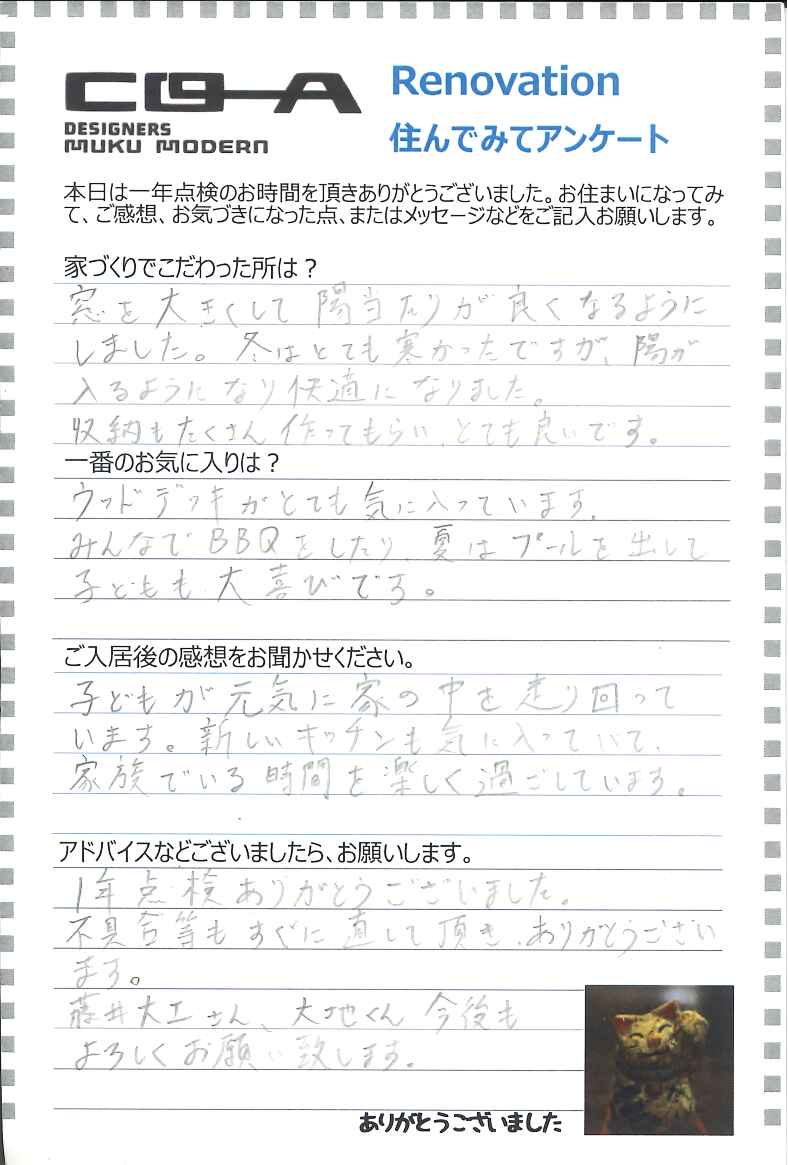 COHA
DESIGNERS
MUKU MODERN
Renovation
住んでみてアンケート
本日は一年点検のお時間を頂きありがとうございました。お住まいになってみ
て、ご感想、お気づきになった点、またはメッセージなどをご記入お願いします。
家づくりでこだわった所は？
窓を大きくして陽当たりが良くなるように
しました。冬はとても寒かったですが、陽が
入るようになり快適になりました。
収納もたくさん作ってもらい、とても良いです。
一番のお気に入りは？
ウッドデッキがとても気に入っています。
みんなでBBQをしたり、夏はプールを出して
子どもも大喜びです。
ご入居後の感想をお聞かせください。
子どもが元気に家の中を走り回って
います。新しいキッチンも気に入っていて、
家族でいる時間を楽しく過ごしています。
アドバイスなどございましたら、お願いします。
1年点検ありがとうございました。
不具合等もすぐに直して頂き、ありがとうござい
ます。
藤井大工さん、大地くん今後も
よろしくお願い致します。
ありがとうございました